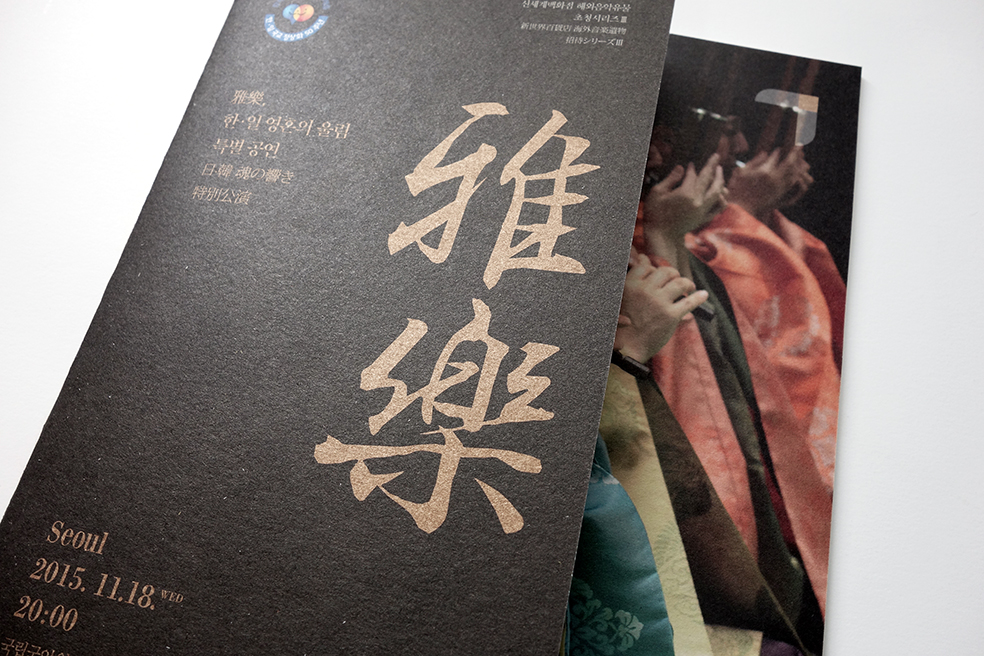 신세계백화점 해외음악유물
초청시리즈Ⅲ
新世界百貨店 海外音楽遺物
招待シリーズⅢ
雅樂,
한·일 영혼의 울림
특별 공연
日韓 魂の響き
特別公演
雅
樂
Seoul
2015. 11.18. WED
20:00